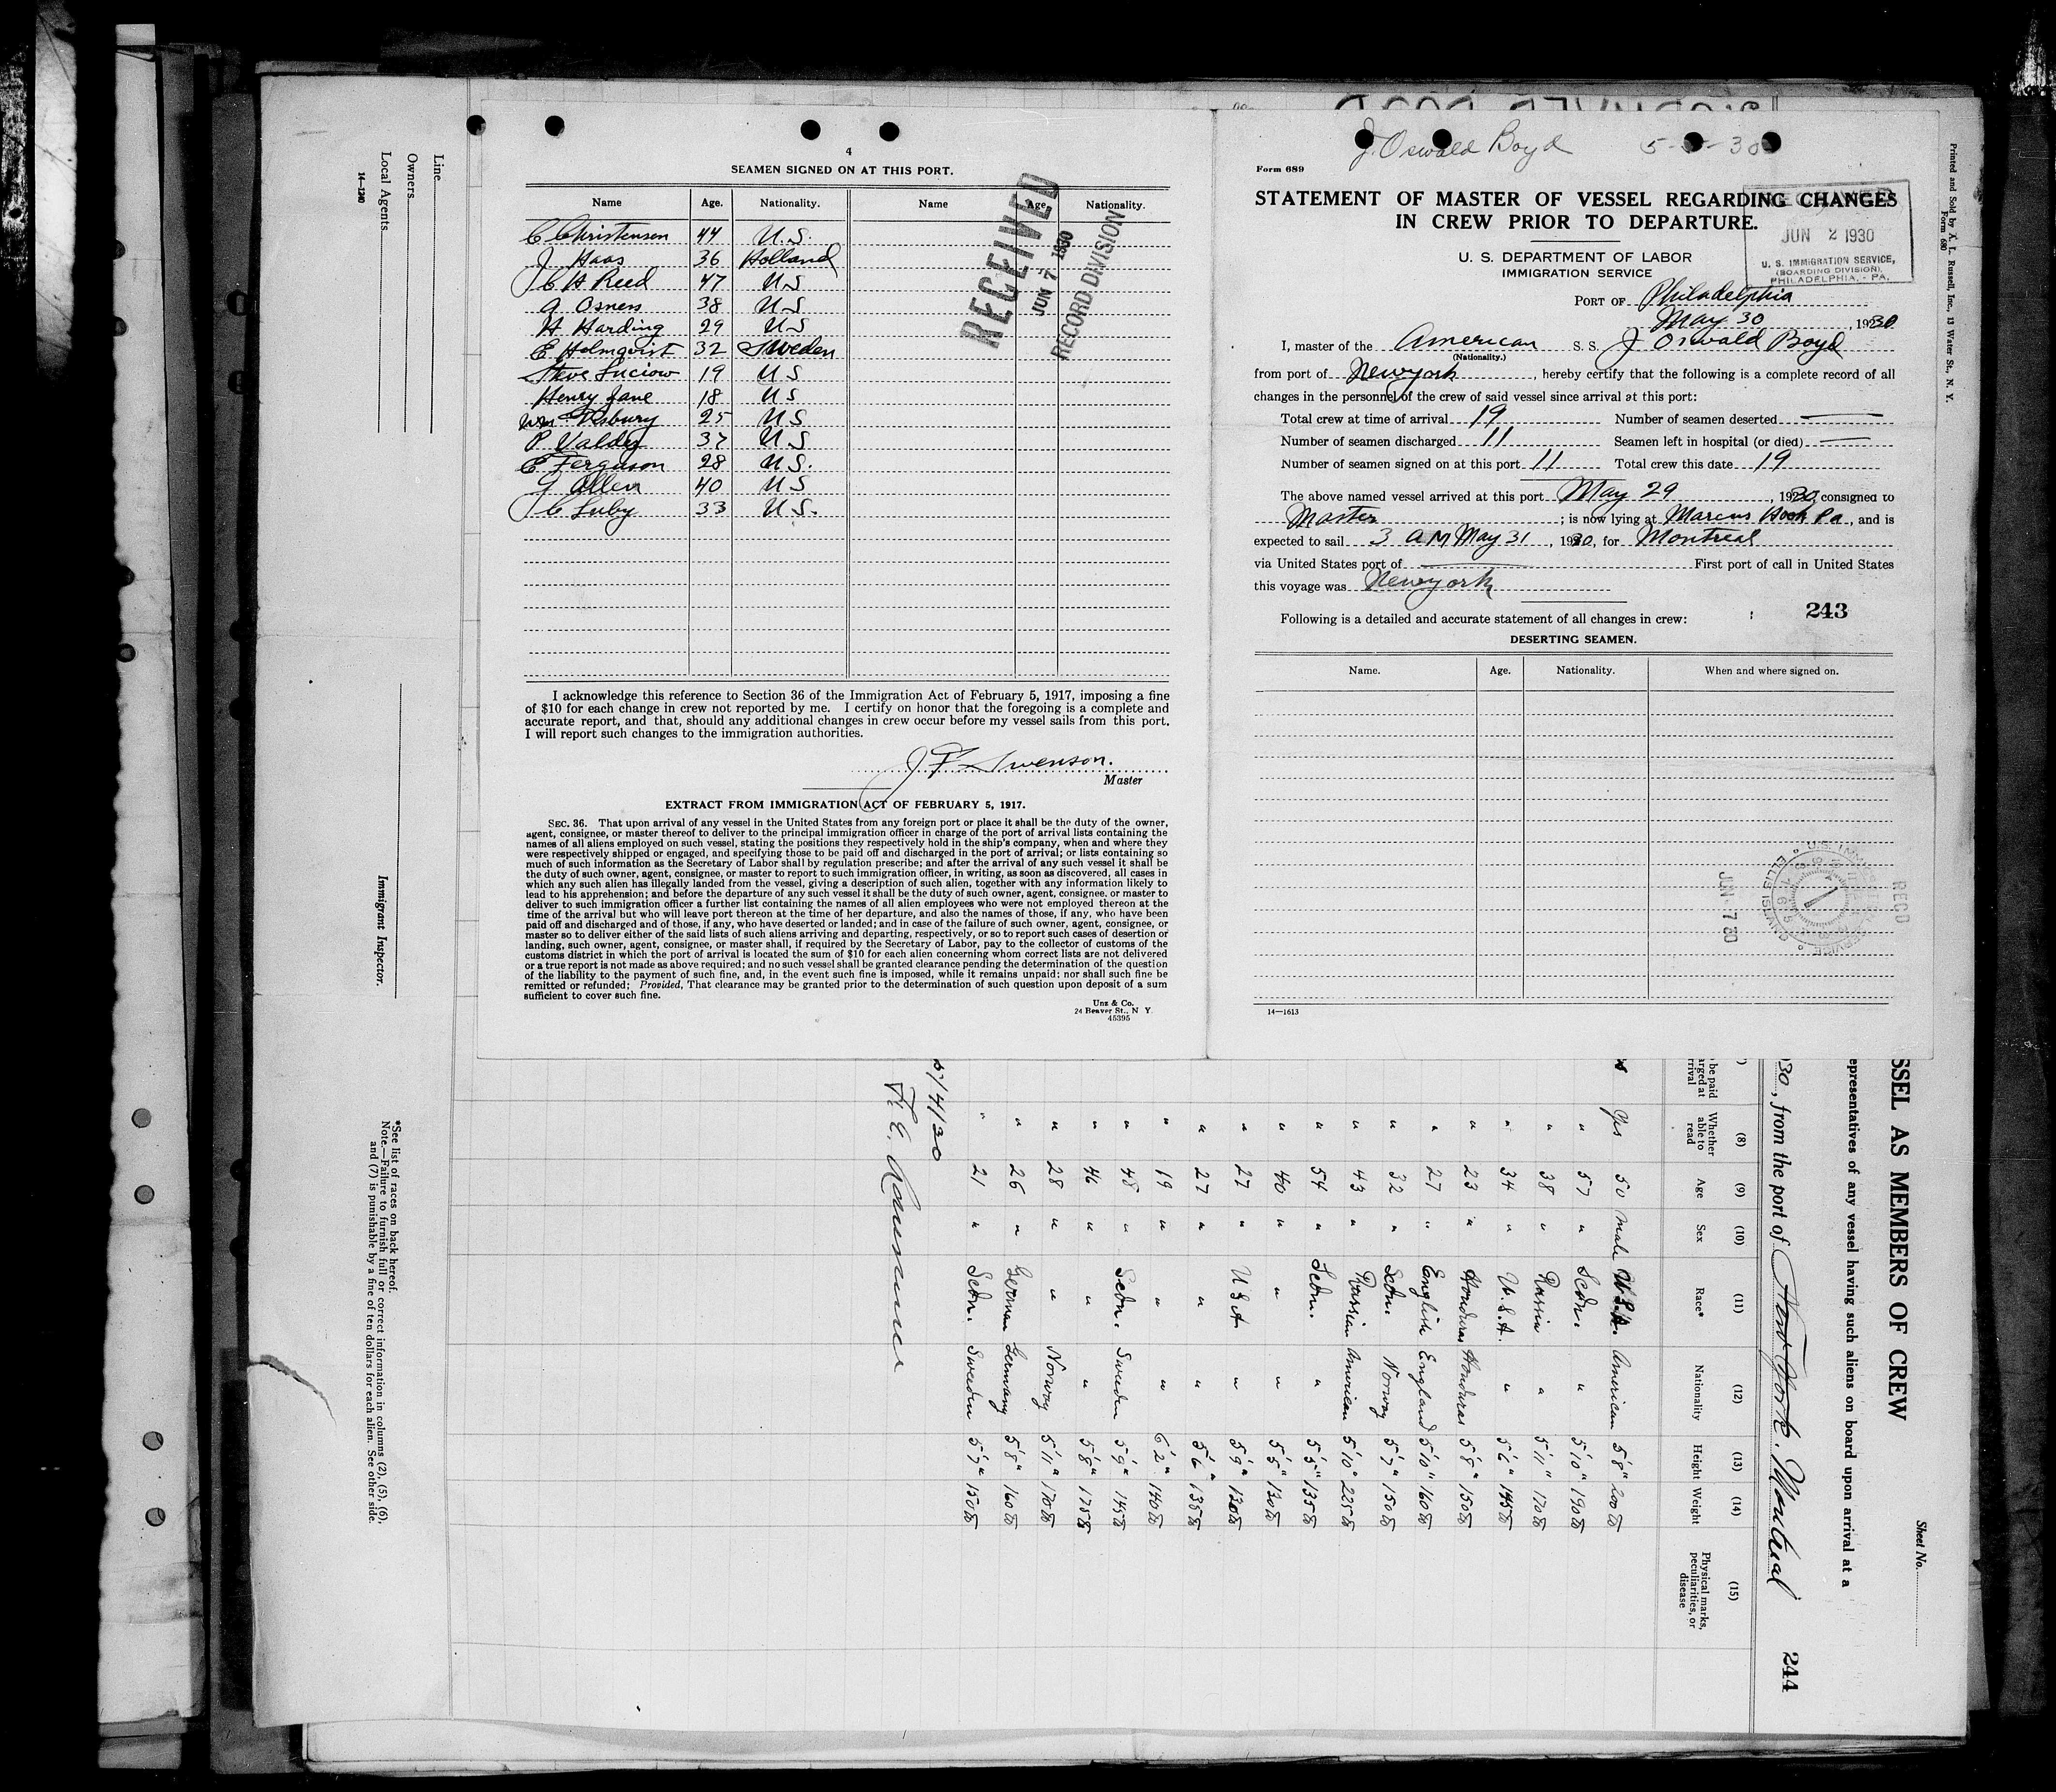 4
SEAMEN SIGNED ON AT THIS PORT.
Name Age. Nationality. Name Age. Nationality.
C Christensen 44 U.S
J Haas 36 Holland
C H Reed 47 U S
A Osness 38 U S
H Harding 29 U S
E Holmqvist 32 Sweden
Steve Luciow 19 U S
Henry Jane 18 U S
Wm 25 U S
P Valdez 37 U S
E Ferguson 28 U S.
G Allen 40 U S
C Luby 33 U S.
RECEIVED
JUN 7 1930
RECORD DIVISION
I acknowledge this reference to Section 36 of the Immigration Act of February 5, 1917, imposing a fine
of $10 for each change in crew not reported by me. I certify on honor that the foregoing is a complete and
accurate report, and that, should any additional changes in crew occur before my vessel sails from this port.
I will report such changes to the immigration authorities.
J F Swenson.
Master
EXTRACT FROM IMMIGRATION ACT OF FEBRUARY 5, 1917.
SEC. 36. That upon arrival of any vessel in the United States from any foreign port or place it shall be the duty of the owner,
agent, consignee, or master thereof to deliver to the principal immigration officer in charge of the port of arrival lists containing the
names of all aliens employed on such vessel, stating the positions they respectively hold in the ship's company, when and where they
were respectively shipped or engaged, and specifying those to be paid off and discharged in the port of arrival; or lists containing so
much of such information as the Secretary of Labor shall by regulation prescribe; and after the arrival of any such vessel it shall be
the duty of such owner, agent, consignee, or master to report to such immigration officer, in writing, as soon as discovered, all cases in
which any such alien has illegally landed from the vessel, giving a description of such alien, together with any information likely to
lead to his apprehension; and before the departure of any such vessel it shall be the duty of such owner, agent, consignee, or master to
deliver to such immigration officer a further list containing the names of all alien employees who were not employed thereon at the
time of the arrival but who will leave port thereon at the time of her departure, and also the names of those, if any, who have been
paid off and discharged and of those, if any, who have deserted or landed; and in case of the failure of such owner, agent, consignee, or
master so to deliver either of the said lists of such aliens arriving and departing, respectively, or so to report such cases of desertion or
landing, such owner, agent, consignee, or master shall, if required by the Secretary of Labor, pay to the collector of customs of the
customs district in which the port of arrival is located the sum of $10 for each alien concerning whom correct lists are not delivered
or a true report is not made as above required; and no such vessel shall be granted clearance pending the determination of the question
of the liability to the payment of such fine, and, in the event such fine is imposed, while it remains unpaid; nor shall such fine be
remitted or refunded; Provided, That clearance may be granted prior to the determination of such question upon deposit of a sum
sufficient to cover such fine.
Unz & Co.
24 Beaver St., N Y.
45395
J. Oswald Boyd 5-5-30
Form 689
STATEMENT OF MASTER OF VESSEL REGARDING CHANGES
IN CREW PRIOR TO DEPARTURE.
JUN 2 1930
U. S. IMMIGRATION SERVICE,
(BOARDING DIVISION),
PHILADELPHIA, - PA.
U. S. DEPARTMENT OF LABOR
IMMIGRATION SERVICE
PORT OF Philadelphia
May 30, 1930
I, master of the American S. S. J Oswald Boyd
(Nationality.)
from port of Newyork, hereby certify that the following is a complete record of all
changes in the personnel of the crew of said vessel since arrival at this port:
Total crew at time of arrival 19 Number of seamen deserted
Number of seamen discharged 11 Seamen left in hospital (or died)
Number of seamen signed on at this port 11 Total crew this date 19
The above named vessel arrived at this port May 29, 1930, consigned to
Master; is now lying at Marcus Hook Pa, and is
expected to sail 3 AM May 31, 1930, for Montreal
via United States port of First port of call in United States
this voyage was Newyork
243
Following is a detailed and accurate statement of all changes in crew:
DESERTING SEAMEN.
Name. Age. Nationality. When and where signed on.
RECD
JUN 7 30
U.S. IMMIGRATION SERVICE ELLIS ISLAND
14—1613
Printed and Sold by A. L. Russell, Inc., 13 Water St., N. Y.
Form 680
Line
Owners
Local Agents
14—1240
Immigrant Inspector.
*See list of races on back hereof.
Note.—Failure to furnish full or correct information in columns (2), (5), (6),
and (7) is punishable by a fine of ten dollars for each alien. See other side.
Sheet No.
SSEL AS MEMBERS OF CREW
epresentatives of any vessel having such aliens on board upon arrival at a
30, from the port of New York. Montreal 244
(8) (9) (10) (11) (12) (13) (14) (15)
be paid
arged at
rrival
Whether able to read Age Sex Race* Nationality Height Weight Physical marks, peculiarities, or disease
Yes 50 Male U.S.A. American 5'8" 200 lb
" 57 " Scdn. " 5'10" 190 lb
" 38 " Russia " 5'11" 170 lb
" 34 " U.S.A. " 5'6" 145 lb
" 23 " Honduras Honduras 5'8" 150 lb
" 27 " English England 5'10" 160 lb
" 32 " Scdn. Norway 5'7" 150 lb
" 43 " Russian American 5'10" 225 lb
" 54 " Scdn. " 5'5" 135 lb
" 40 " " " 5'5" 130 lb
" 27 " U S A " 5'9" 130 lb
" 27 " " " 5'6" 135 lb
" 19 " " " 6'2" 140 lb
" 48 " Scdn. Sweden 5'9" 145 lb
" 46 " " " 5'8" 175 lb
" 28 " " Norway 5'11" 170 lb
" 26 " German Germany 5'8" 160 lb
" 21 " Scdn. Sweden 5'7" 150 lb